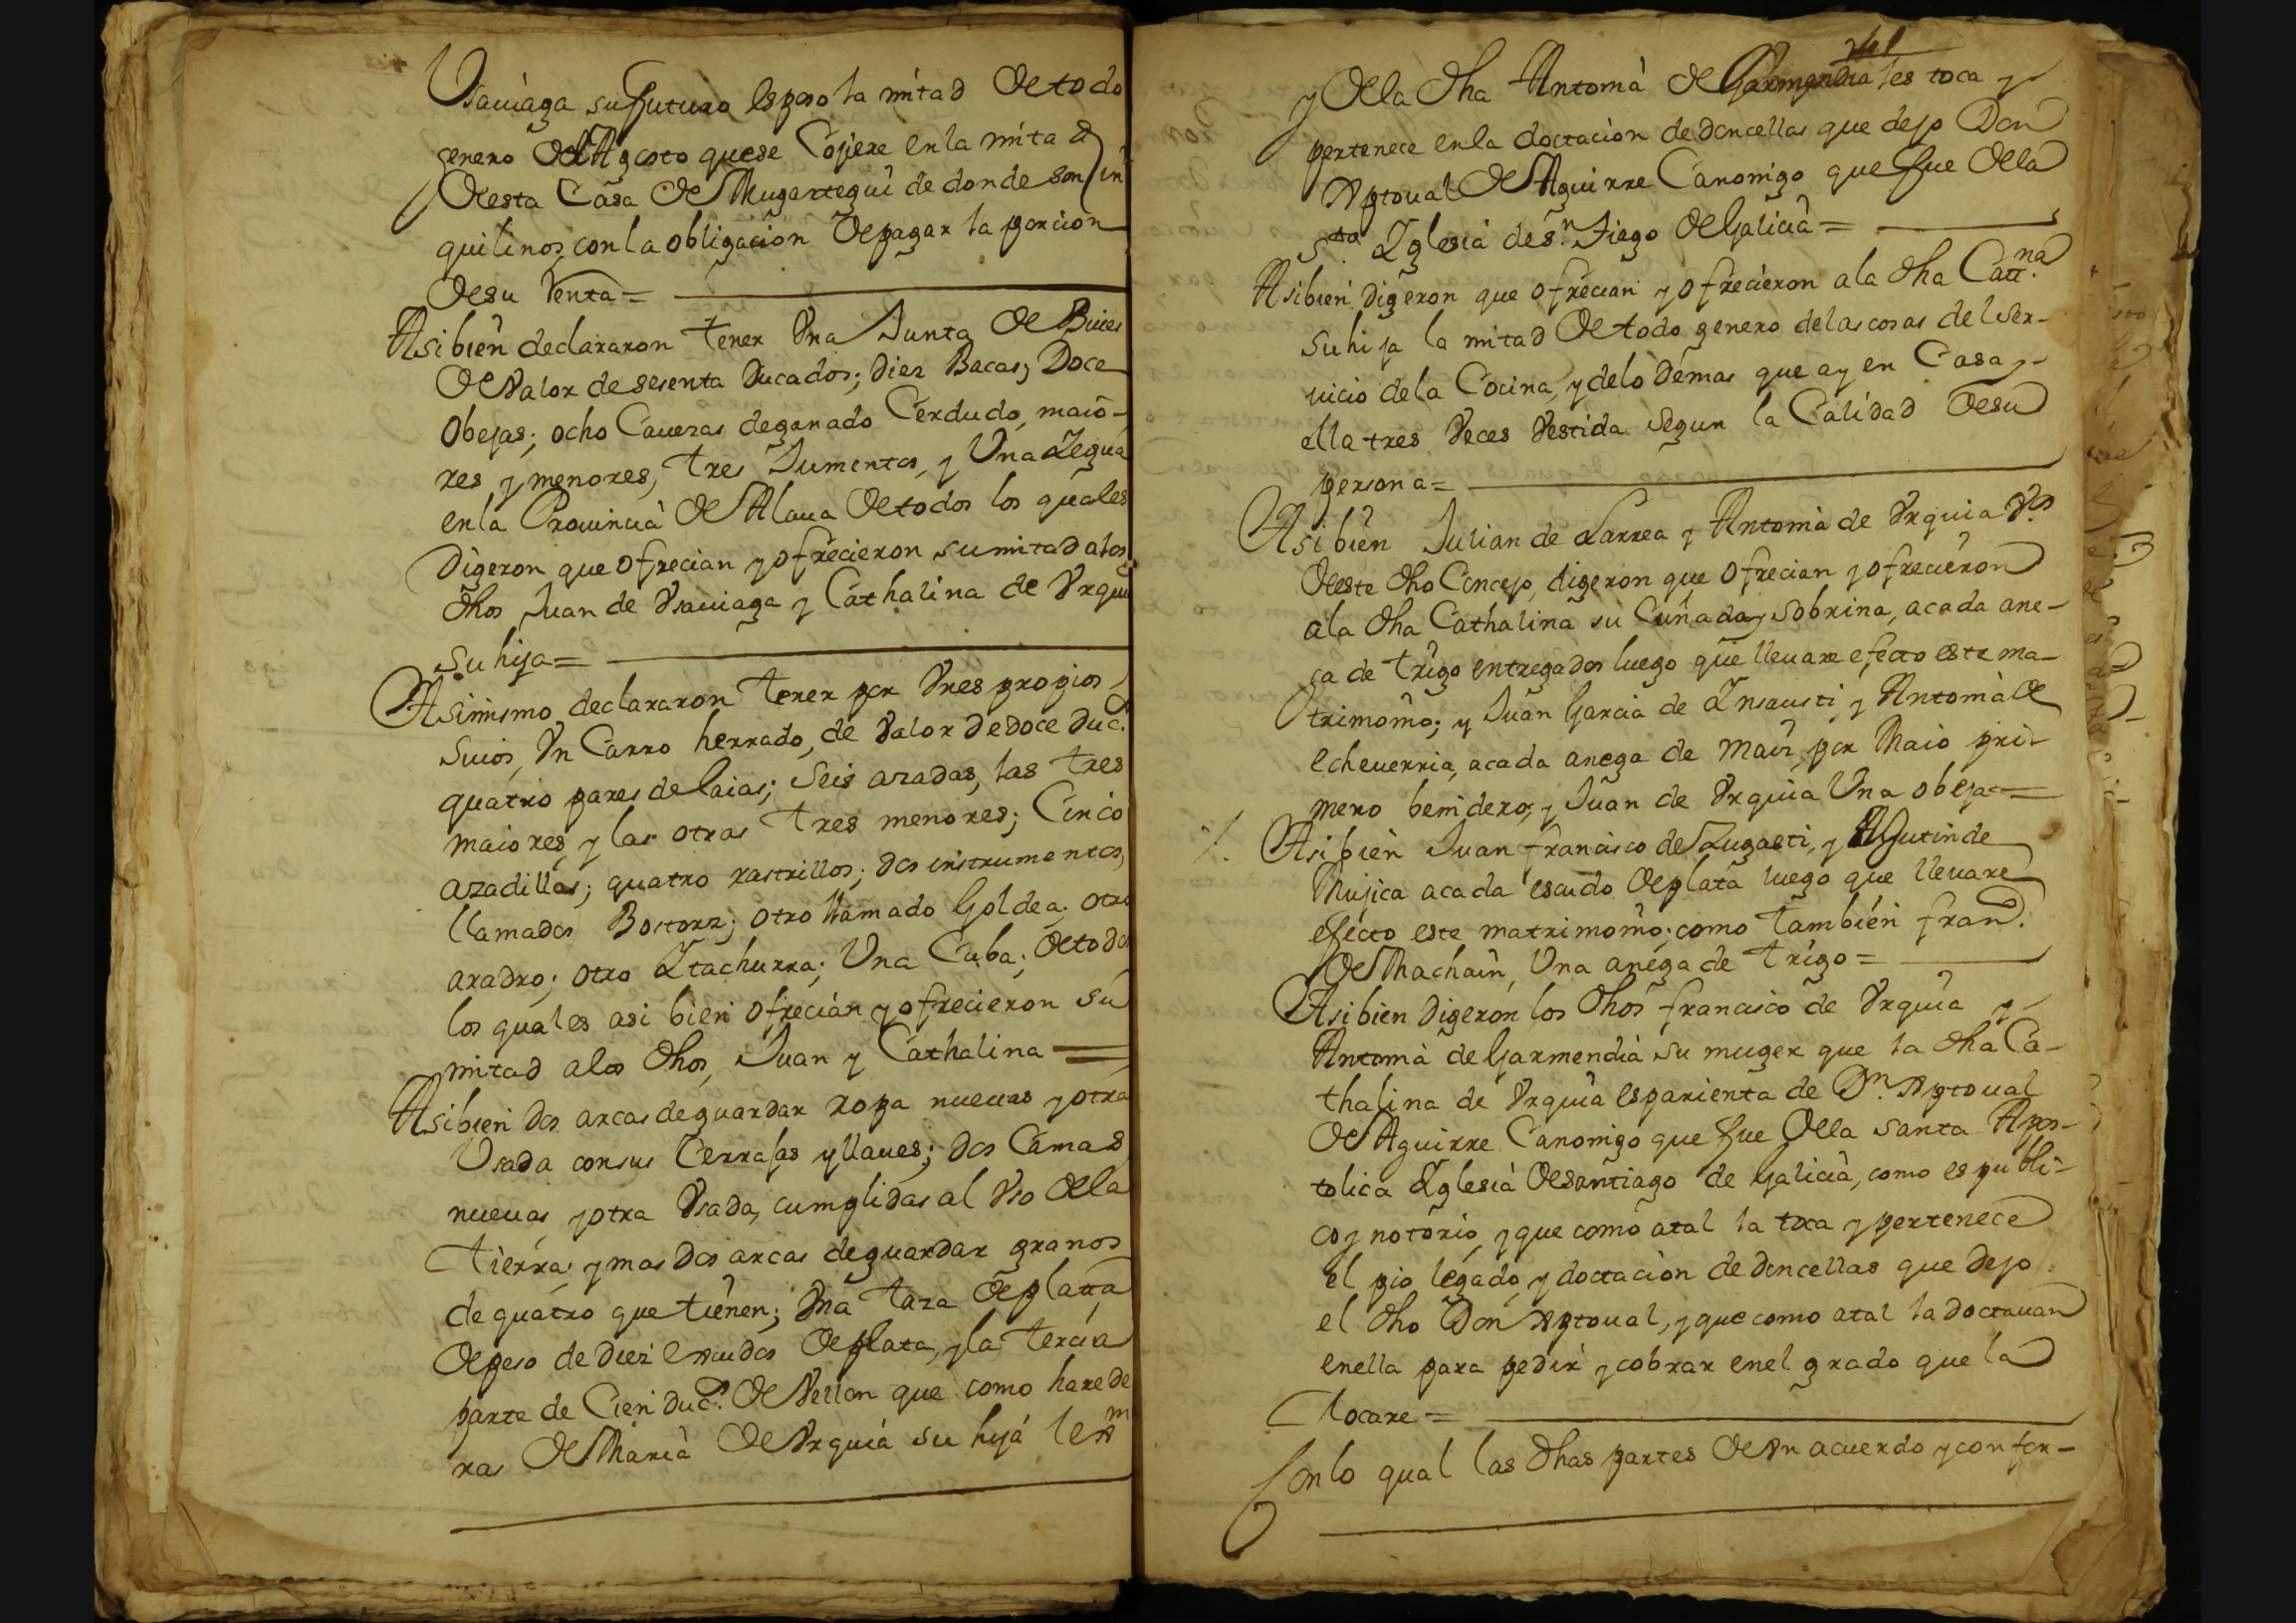 Vsauiaga su futuro esposo la mitad de todo
genero de Agosto que se Cojiere en la mitad
de esta Casa de Mugartegui de donde son in
quilinos, con la obligacion de pagar la porcion
de su Renta =
Asi bien declararon tener Vna Junta de Buies
de Valor de sesenta Ducados; diez Bacas; Doce
obejas; ocho Cauezas de ganado Cerdudo, maio-
res, y menores, tres Jumentos, y Vna Zegua
en la Prouincia de Alaua de todos los quales
Digeron que ofrecian y ofrecieron su mitad a los
dhos Juan de Vsauiaga y Cathalina de Vrquia
su hija =
Asimismo declararon tener por Vnes propios
suios, Vn Carro herrado, de Valor de doce duc.s
quatro pares de laias; seis azadas, las tres
maiores, y las otras tres menores; Cinco
azadillas; quatro rastrillos; dos instrumentos,
llamados Bostorz; otro llamado Goldea; otro
aradro; otro Ztachurra; Vna Cuba; de todos
los quales asi bien ofrecian y ofrecieron su
mitad a los dhos, Juan y Cathalina =
Asi bien dos arcas de guardar ropa nueuas y otra
Vsada con sus Cerrajas y llaues; dos Camas
nueuas, y otra Vsada, cumplidas al Vso de la
tierra; y mas dos arcas de guardar granos
de quatro que tienen; Vna taza de plata
de peso de diez escudos de plata, y la tercia
parte de Cien duc.s de Vellon que comoharede
ras de Maria de Vrquia su hija lexm
241
y de la dha Antonia de Garmendia les toca y
pertenece en la doctacion de doncellas que dejo Don
Xptoual de Aguirre Canonigo que fue de la
S.ta Yglesia de S.n Tiego de Galicia =
Asi bien digeron que ofrecian y ofrecieron a la dha Catt.na
su hija la mitad de todo genero de las cosas del ser-
uicio de la Cocina, y de lo demas que ay en Casa y
ella tres Veces Vestida segun la Calidad de su
persona =
Asi bien Julian de Larrea y Antonia de Vrquia V.os
de este dho Concejo, digeron que ofrecian y ofrecieron
a la dha Cathalina su Cuñada y sobrina, a cada ane-
ga de trigo entregados luego que lleuare efecto este ma-
trimonio; y Juan Garcia de Ynsausti y Antonia de
Echeuerria, a cada anega de Maiz por Maio pri-
mero benidero; y Juan de Vrquia Vna obeja =
Asi bien Juan francisco de Lugasti, y Agutin de
Mujica a cada escudo de plata luego que lleuare
efecto este matrimonio; como tambien fran.co
de Machain, Vna anega de trigo =
Asi bien digeron los dhos francisco de Vrquia y
Antonia de Garmendia su muger que la dha Ca-
thalina de Vrquia es parienta de D.n Xptoual
de Aguirre Canonigo que fue de la santa Apos-
tolica Yglesia de Santiago de Galicia, como es publi-
co y notorio, y que como a tal la toca y pertenece
el pio legado, y doctacion de doncellas que dejo
el dho Don Xptoual, y que como a tal la doctauan
en ella para pedir y cobrar en el grado que la
tocare =
Con lo qual las dhas partes de Vn acuerdo y confor-